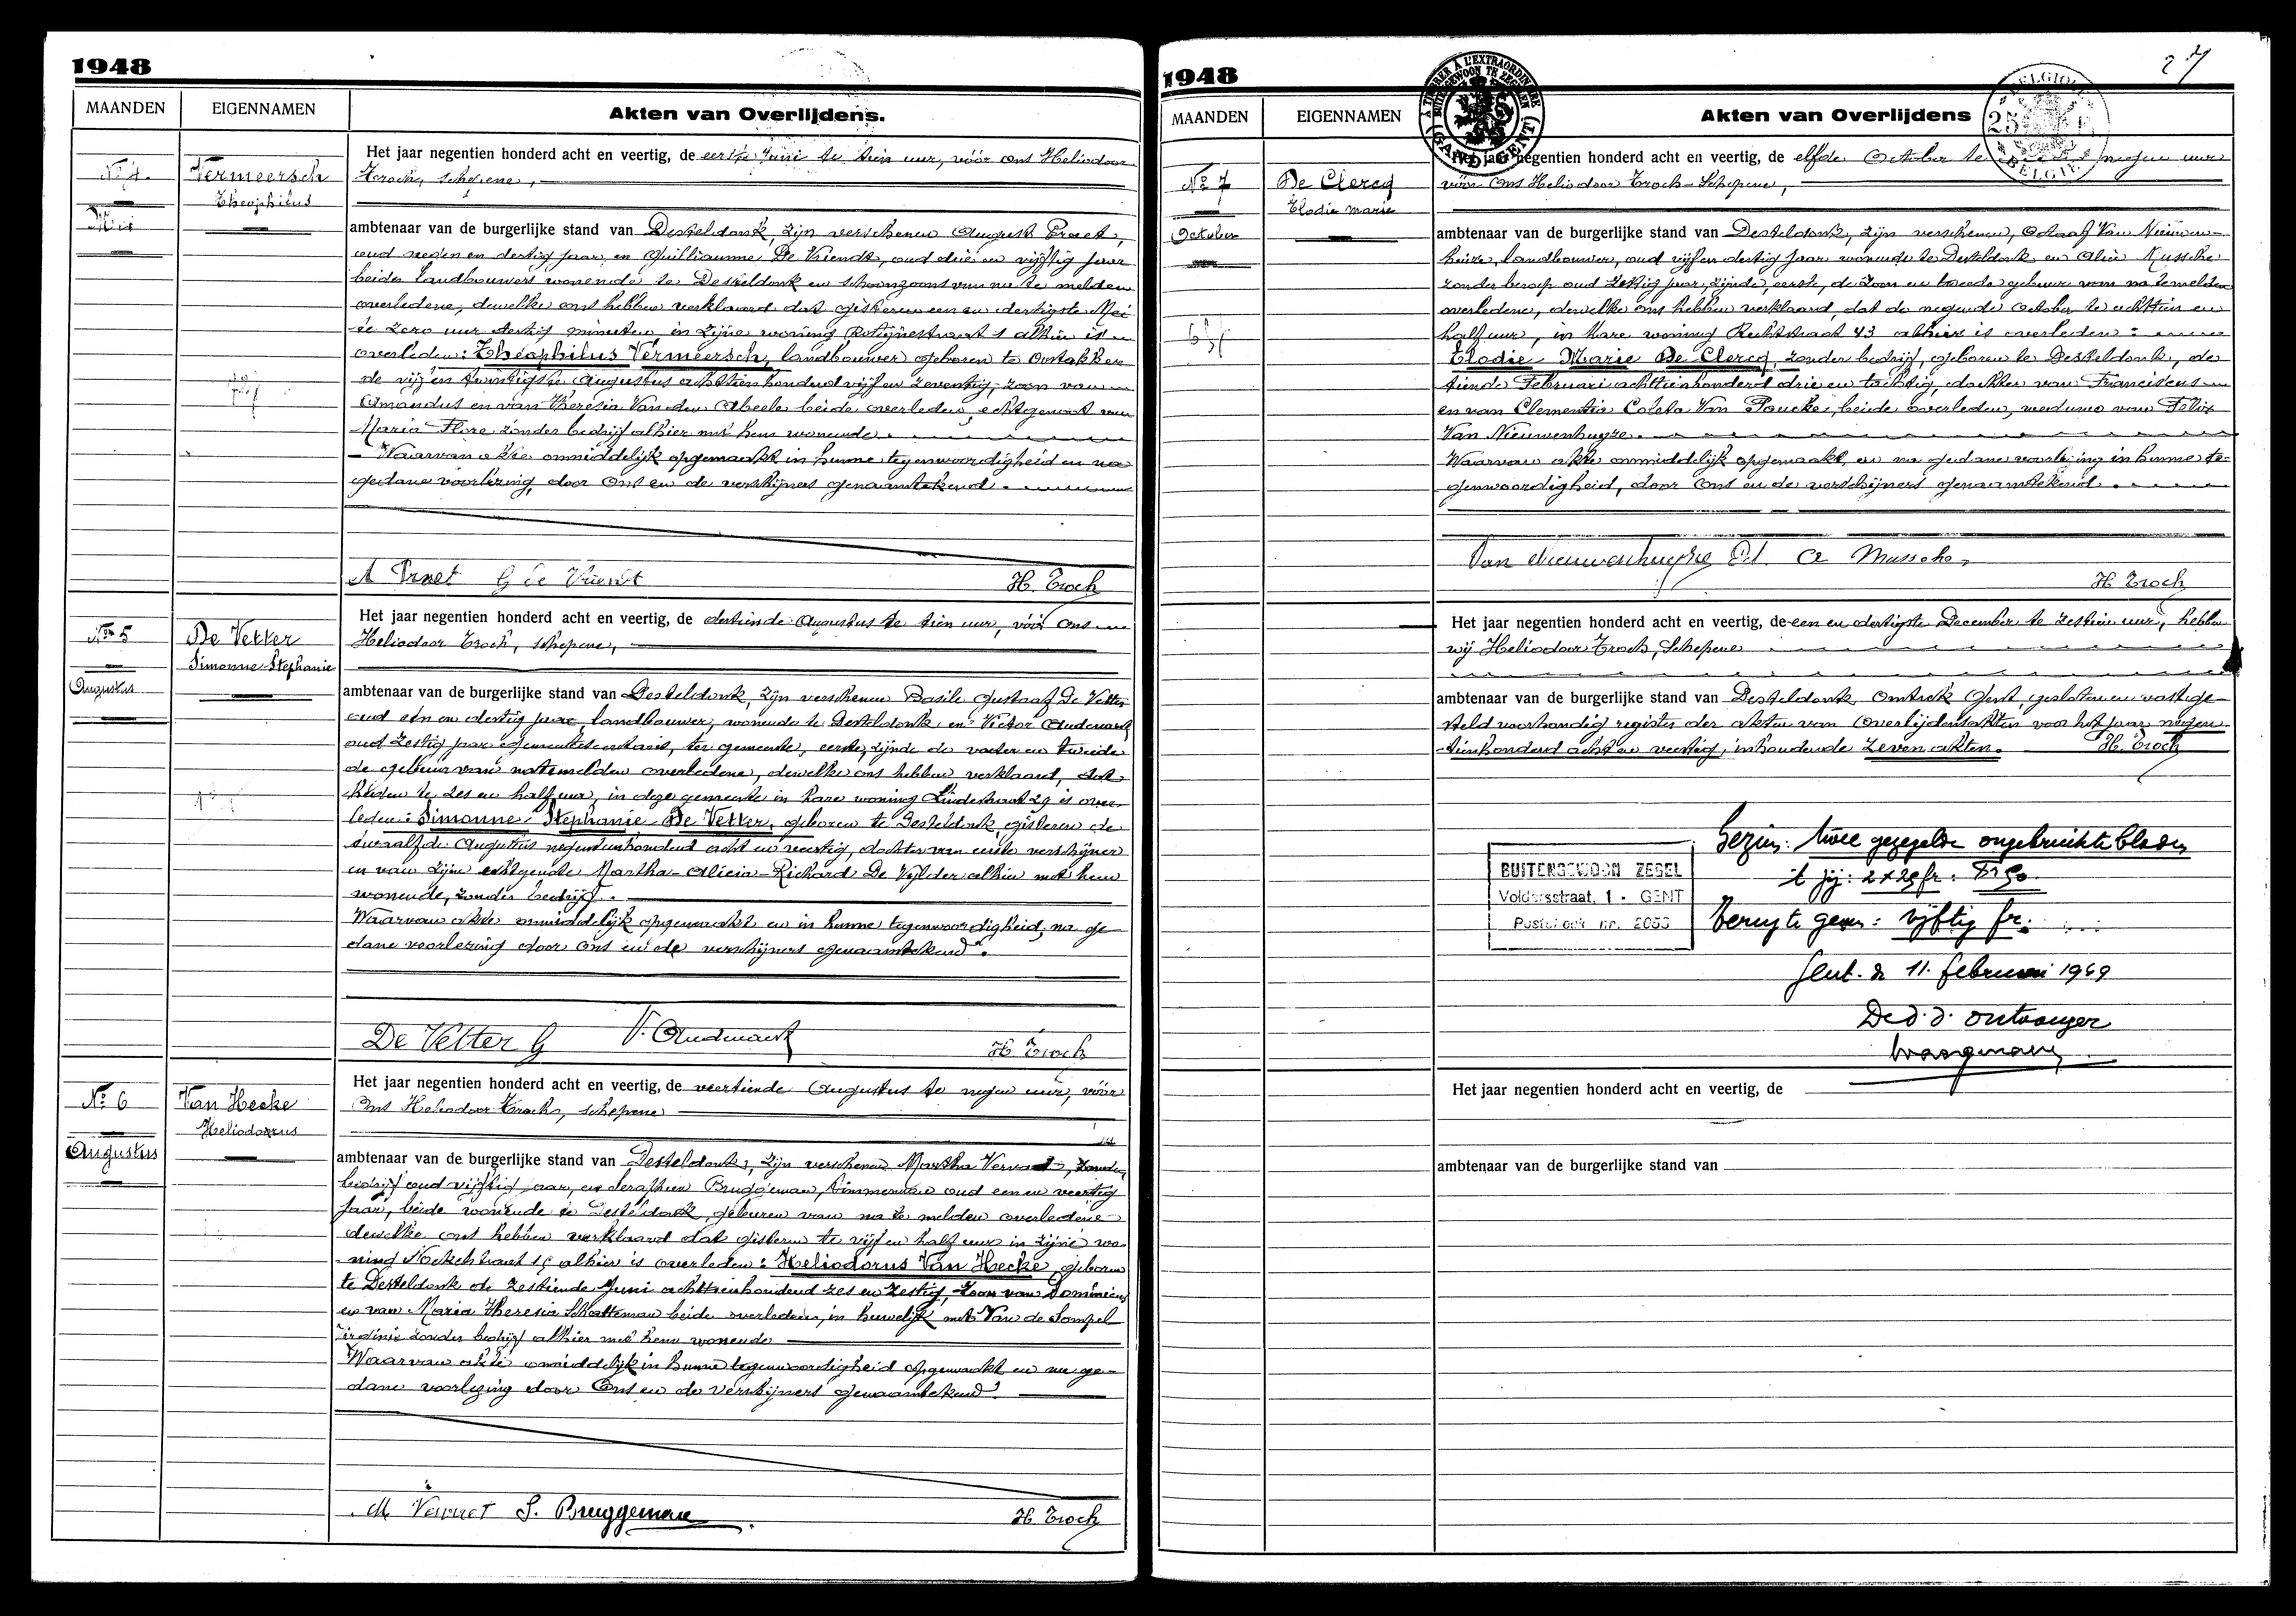 1948
MAANDEN
EIGENNAMEN
Akten van Overlijdens.
Nº 4.
Mei
Vermeersch
Theophilus
Het jaar negentien honderd acht en veertig, de eerste Juni te tien uur, vóór ons Heliodoor
Troch, schepene,
ambtenaar van de burgerlijke stand van Desteldonk, zijn verschenen August Praet,
oud negen en dertig jaar, en Guilliaume De Vriendt, oud drie en vijftig jaar
beiden landbouwers wonende te Desteldonk en schoonzoons van na te melden
overledene, dewelke ons hebben verklaard dat gisteren een en dertigste Mei
te zero uur dertig minuten in zijne woning 1 alhier is
overleden: Théophilus Vermeersch, landbouwer geboren te Oostakker
de vijf en twintigste Augustus achttienhonderd vijf en zeventig, zoon van
Amandus en van Theresia Van den Abeele beide overleden, echtgenoot van
Maria Flore zonder bedrijf alhier met hem wonende.
Waarvan akte onmiddelijk opgemaakt in hunne tegenwoordigheid en na
gedane voorlezing, door Ons en de verschijners genaamtekend.
A Praet G de Vriendt H. Troch
Nº 5
Augustus
De Vetter
Simonne Stephanie
Het jaar negentien honderd acht en veertig, de dertiende Augustus te tien uur, vóór ons
Heliodoor Troch, schepene,
ambtenaar van de burgerlijke stand van Desteldonk, zijn verschenen Basile Gustaaf De Vetter
oud een en dertig jaar, landbouwer, wonende te Desteldonk en Victor Audenaert
oud zestig jaar gemeentesecretaris, ter gemeente, eerste, zijnde de vader en tweede
de gebuur van natemelden overledene, dewelke ons hebben verklaard, dat
heden te zes en half uur, in deze gemeente in hare woning Lindestraat 29 is over-
leden: Simonne-Stephanie De Vetter, geboren te Desteldonk, gisteren de
twaalfde Augustus negentienhonderd acht en veertig, dochter van eerste verschijner
en van zijne echtgenote Martha-Alicia-Richard De Vijlder alhier met hem
wonende, zonder bedrijf.
Waarvan akte onmiddelijk opgemaakt en in hunne tegenwoordigheid, na ge-
dane voorlezing door Ons en de verschijners genaamtekend.
De Vetter G V. Audenaert H. Troch
Nº 6
Augustus
Van Hecke
Heliodorus
Het jaar negentien honderd acht en veertig, de veertiende Augustus te negen uur, vóór
Ons Heliodoor Troch, schepene
ambtenaar van de burgerlijke stand van Desteldonk, zijn verschenen Martha Vervaet, zonder
bedrijf oud vijftig jaar, en Seraphien Bruggeman, timmerman oud een en veertig
jaar, beide wonende te Desteldonk, geburen van na te melden overledene
dewelke ons hebben verklaard dat gisteren te vijf en half uur in zijne wo-
ning alhier is overleden: Heliodorus Van Hecke, geboren
te Desteldonk de zestiende Juni achttienhonderd zes en zestig, zoon van Dominicus
en van Maria Theresia Schatteman beide overleden, in huwelijk met Van de Sompel
Virginie zonder bedrijf alhier met hem wonende
Waarvan akte onmiddelijk in hunne tegenwoordigheid opgemaakt en na ge-
dane voorlezing door Ons en de verschijners genaamtekend.
M Vervaet S. Bruggeman H. Troch
1948
27
MAANDEN
EIGENNAMEN
Akten van Overlijdens
A TIMBRER A L'EXTRAORDINAIRE
GAND (GENT)
BELGIQUE
25 FR
BELGIË
Nº 7
October
De Clercq
Elodie Marie
Het jaar negentien honderd acht en veertig, de elfde October te negen uur
vóór Ons Heliodoor Troch-Schepene,
ambtenaar van de burgerlijke stand van Desteldonk, zijn verschenen, Octaaf Van Nieuwen-
huize, landbouwer, oud vijf en dertig jaar wonende te Desteldonk en Alice Mussche
zonder beroep oud zestig jaar, zijnde, eerste, de zoon en tweede gebuur van natemelden
overledene, dewelke ons hebben verklaard, dat de negende October te achttien en
half uur, in hare woning Rechtstraat 43 alhier is overleden:
Elodie-Marie De Clercq, zonder bedrijf, geboren te Desteldonk, de
tiende Februari achttienhonderd drie en tachtig, dochter van Franciscus
en van Clementia Coleta Van Poucke, beide overleden, weduwe van Felix
Van Nieuwenhuyze.
Waarvan akte onmiddelijk opgemaakt, en na gedane voorlezing in hunne te-
genwoordigheid, door Ons en de verschijners genaamtekend.
Van Nieuwenhuyze Od. A Mussche
H. Troch
Het jaar negentien honderd acht en veertig, de een en dertigste December te zestien uur, hebben
wij Heliodoor Troch, Schepene
ambtenaar van de burgerlijke stand van Desteldonk, omtrek Gent, gesloten en vastge-
steld voorhandig register der akten van Overlijdensakten voor het jaar negen-
tienhonderd acht en veertig, inhoudende zeven akten. H. Troch
BUITENGEWOON ZEGEL
Voldersstraat, 1 - GENT
Postcheck nr. 2055
Gezien: twee gezegelde ongebruikte bladen
't zij: 2 x 25 fr. = Fr 50
Terug te geven: vijftig fr.
Gent. de 11. februari 1949
De d.d. ontvanger
Het jaar negentien honderd acht en veertig, de
ambtenaar van de burgerlijke stand van